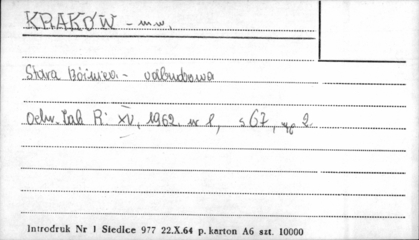 KRAKÓW - m.w.
Stara Bóżnica - odbudowa
Ochr. Zab. R: XV, 1962. nr 1, s 67, ryc 2.
Introdruk Nr 1 Siedlce 977 22.X.64 p. karton A6 szt. 10000